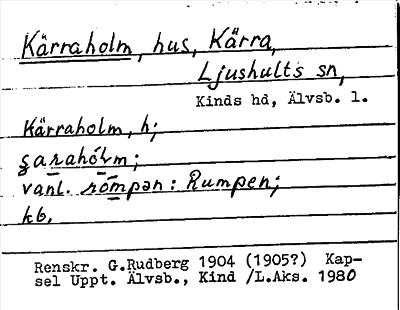 Kärraholm, hus, Kärra,
Ljushults sn,
Kinds hd, Älvsb. l.
Kärraholm, h;
vanl. : Rumpen;
kb.
Renskr. G.Rudberg 1904 (1905?) Kap-
sel Uppt. Älvsb., Kind /L.Aks. 1980